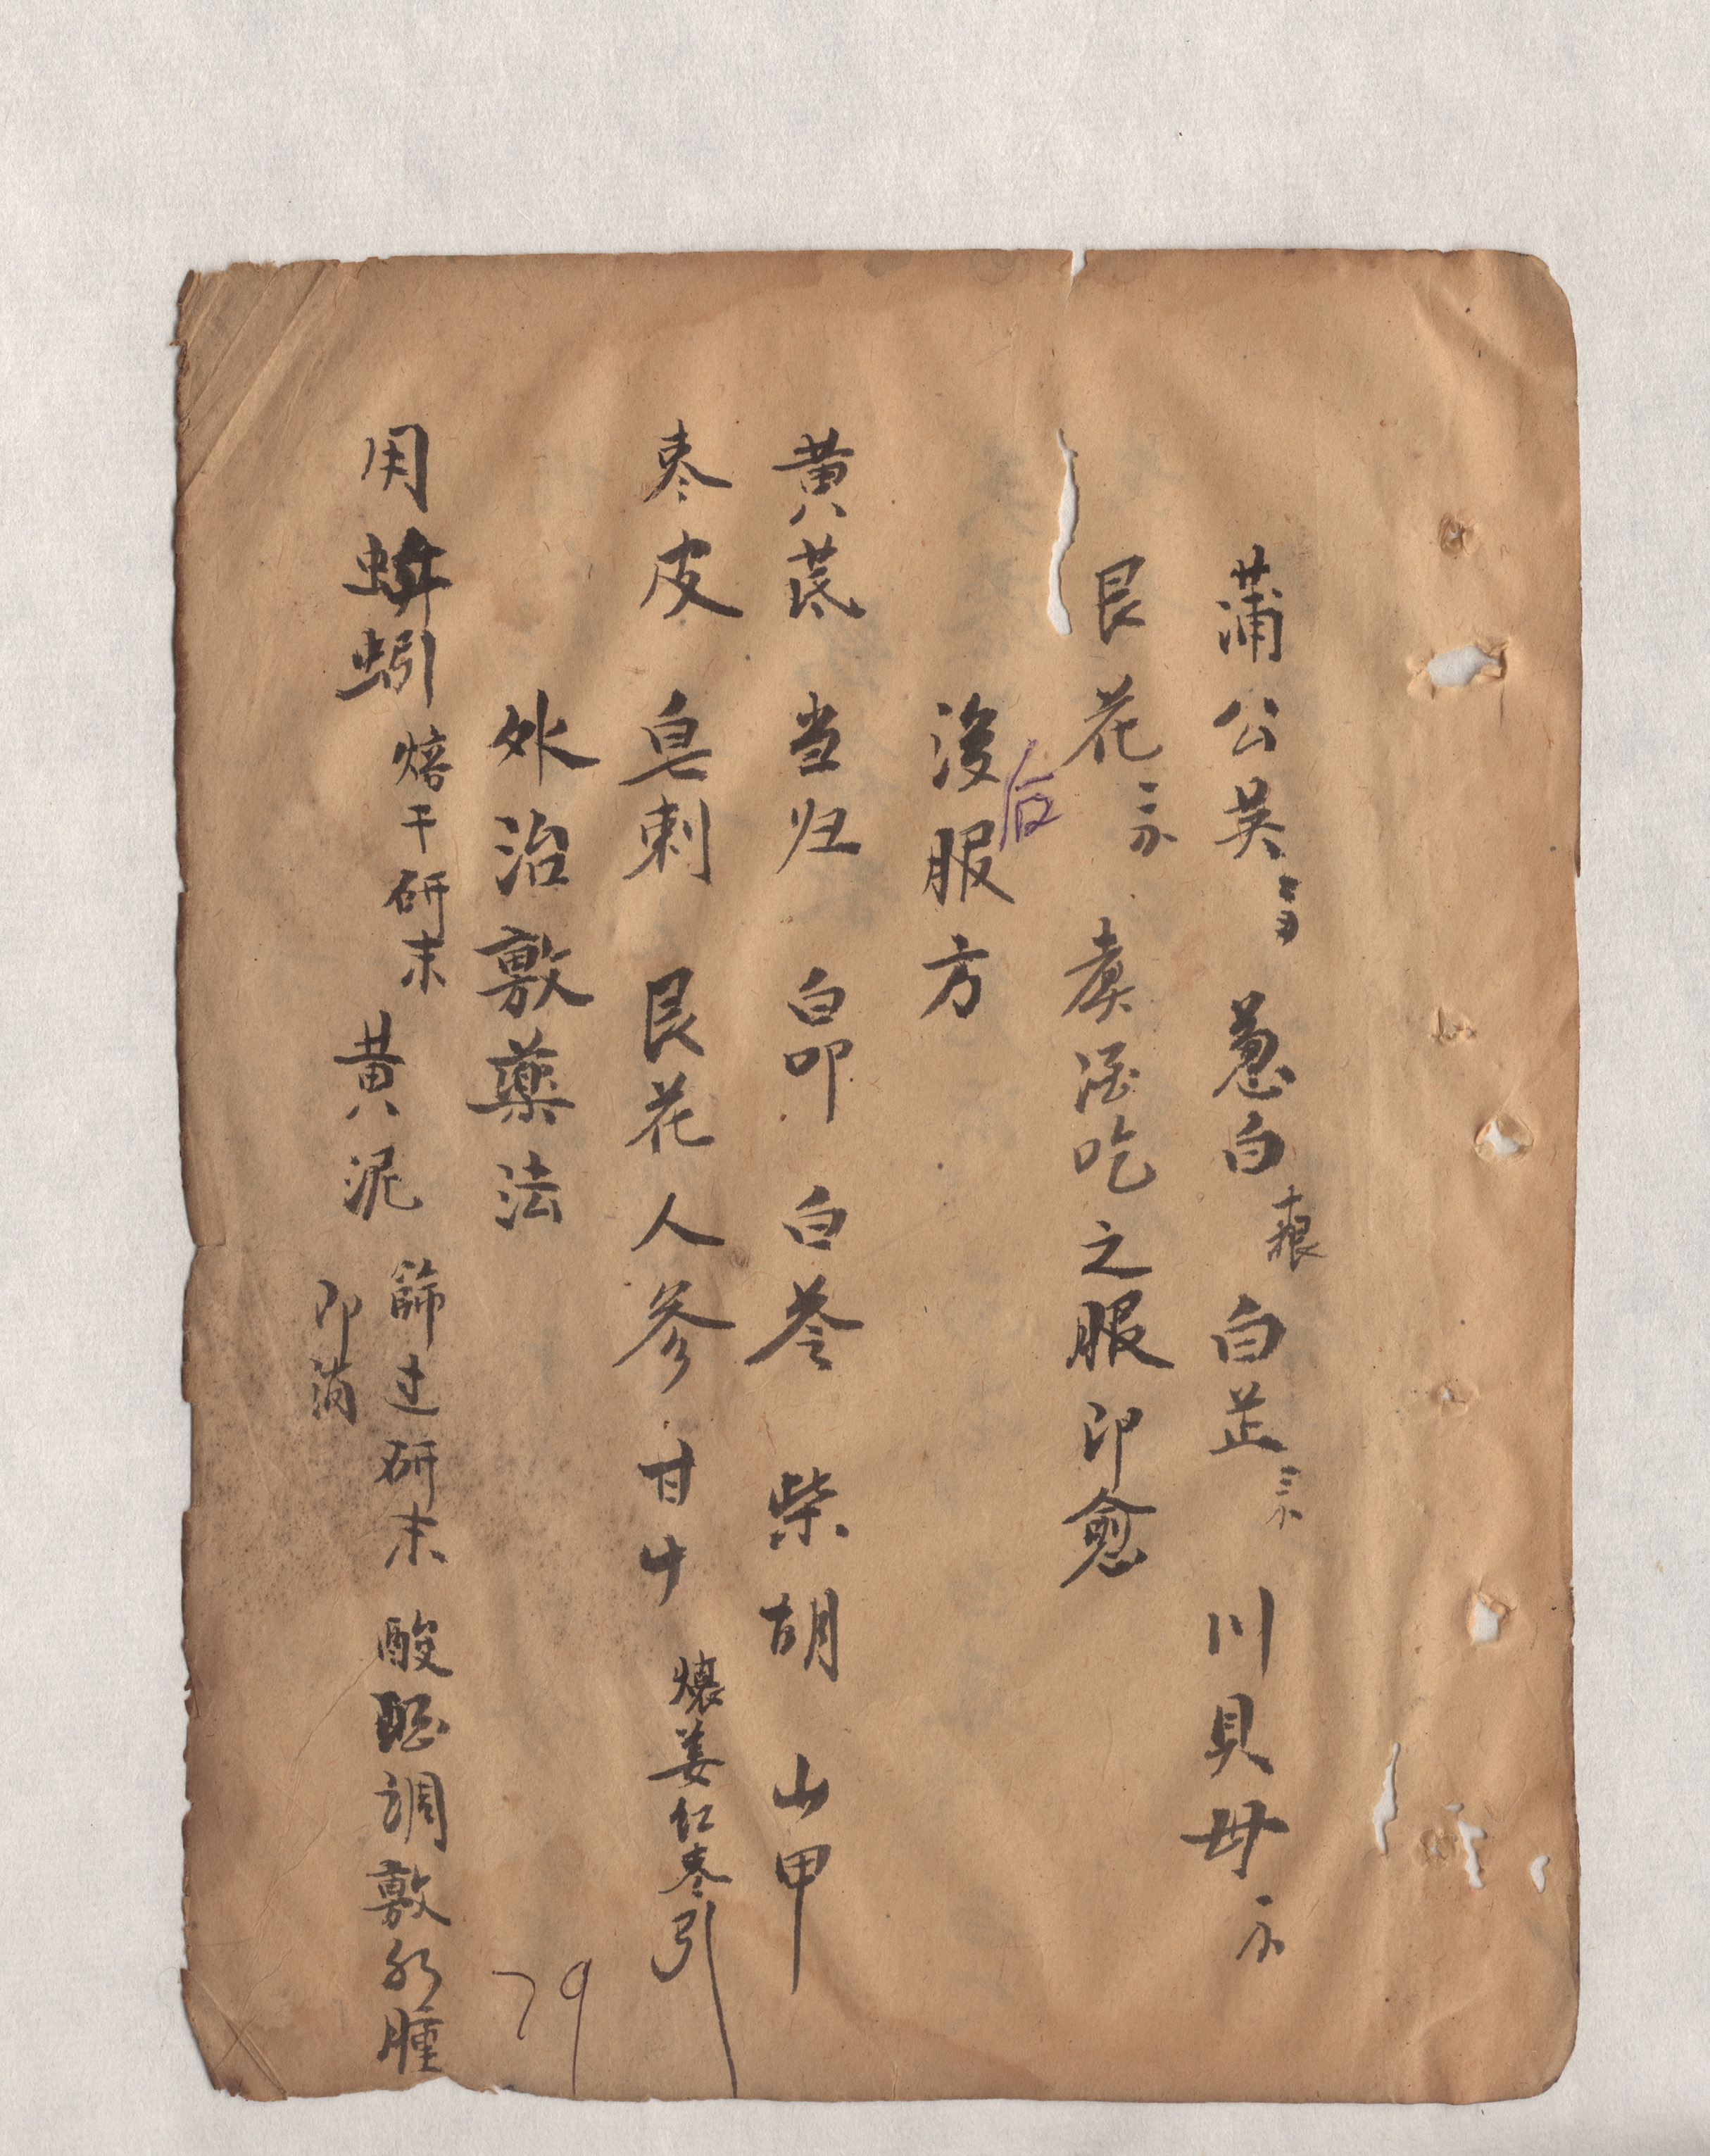 蒲公英 葱白 十根 白芷 三 川貝母 一
艮花 二 煮酒吃之服即愈
後服方
后
黄茋 当归 白叩 白苓 柴胡 山甲
枣皮 皂刺 艮花 人参 甘屮 煨姜红枣引
外治敷藥法
用蚌蚓 焙干研末 黄泥 篩过研末 酸醋調敷 腫
即消
79